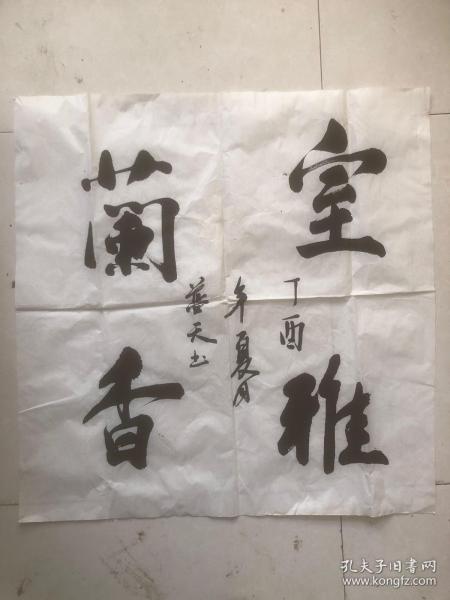 室雅
蘭香
丁酉
年夏月
藝天书
孔夫子旧书网
www.kongfz.com